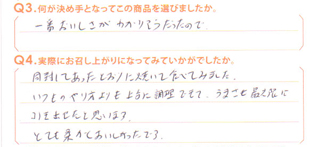 Q3.何が決め手となってこの商品を選びましたか。
一番おいしさがわかりそうだったので
Q4.実際にお召し上がりになってみていかがでしたか。
同封してあったとおりに焼いて食べてみました。
いつものやり方よりも上手に調理できて、うまさを最大限に
引き出せたと思います。
とても柔かくておいしかったです。